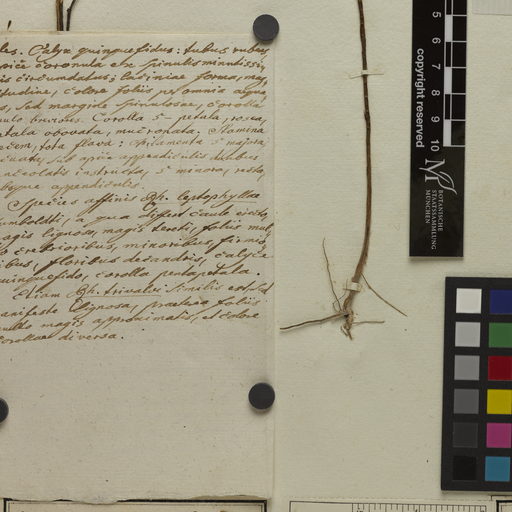 les. Calyx quinquefidus: tubus rubes
apice coronula ex spinulis minutissi,
is circumdatus: laciniae forma, mag,
itudine, colore foliis per omnia aequa
s, sed margine spinulosae, corolla
breviores. Corolla 5-petala, rosea,
etala obovata, mucronata. Stamina
ecem, tota flava: filamenta 5 majora,
apice appendiculis duabus
nceolatis instructa, 5 minora, recta,
bsque appendicules.
Species affinis Rh. leptophylla
umboldti, a qua differt caule erecto,
agis lignoso, magis tereti, foliis mul,
o crebrioribus, minoribus, firmio
ibus, floribus decandris, calyce
uinquefido, corolla pentapetala.
Etiam Rh. trivalvi similis est sed
anifeste lignosa, praeterea foliis
magis approximatis, et colore
corollae diversa.
5 6 7 8 9 10
copyright reserved
BOTANISCHE
STAATSSAMMLUNG
MÜNCHEN